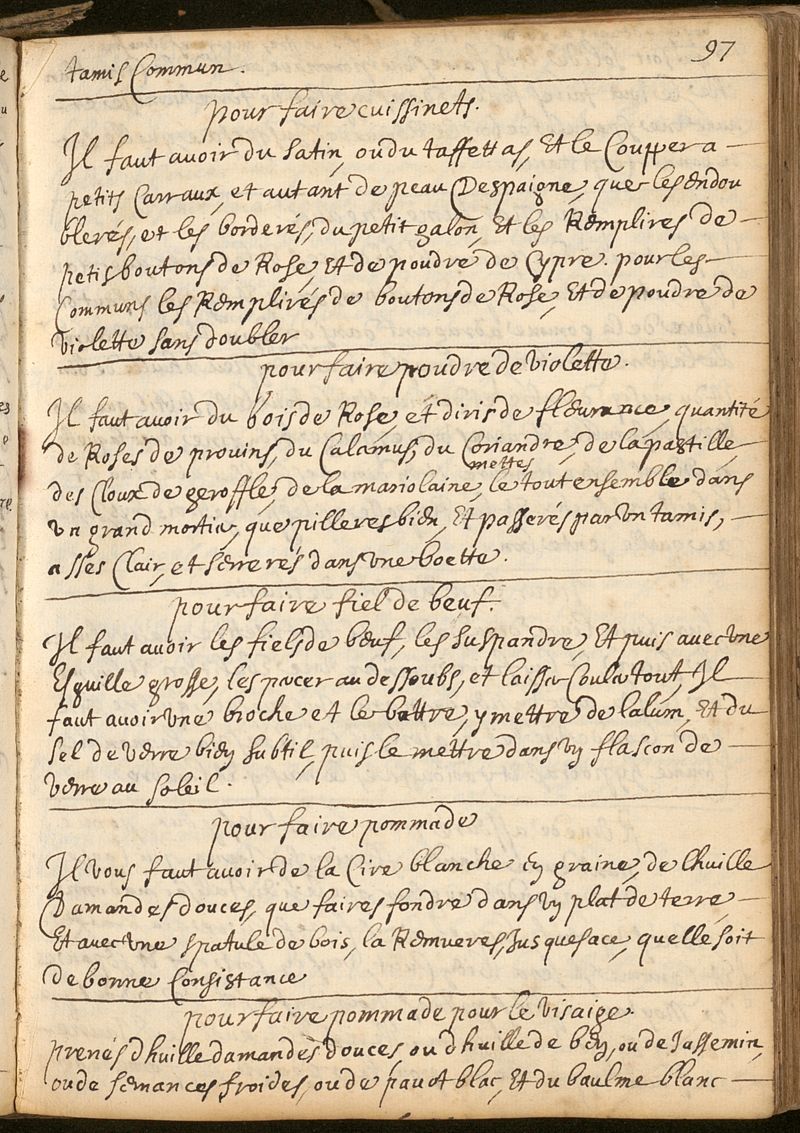 97
tamis Commun.
pour faire cuissinets.
Il faut avoir du satin, ou du taffettas, Et le Coupper a
petits Carraux, et autant de peau Despaigne, que les endou
blerés, et les borderés, du petit galon, Et les Remplires de
petis boutons de Rose, Et de poudre de Cypre. pour les
Communs les Remplirés de boutons de Rose, Et de poudre de
violette sans doubler
pour faire poudre de violette.
Il faut avoir du bois de Rose, et diris de fleurance, quantité
de Roses de provins, du Calamus, du Coriandre, de la pastille
mettes
des Cloux de geroffle, de la mariolaine, le tout ensemble dans
un grand mortier, que pilleres bien, Et passerés par un tamis,
asses Clair, et serrerés dans une boette.
pour faire fiel de beuf.
Il faut avoir les fiels de bœuf, les suspandre, Et puis avec une
Esguille grosse, les pacer au dessoubs, et laisser Couler tout, Il
faut avoir une broche et le battre, y mettre de lalum, Et du
sel de verre bien subtil, puis le mettre dans un flascon de
verre au soleil.
pour faire pommade
Il vous faut avoir de la Cire blanche en graine, de lhuille
Damandes douces, que faires fondre dans un plat de terre
Et avec une spatule de bois, la Remueres, Jusques a ce, quelle soit
de bonne Consistance
pour faire pommade pour le visaige.
prenés dhuille damandes douces, ou dhuille de ben, ou de Jassemin,
ou de semances froides, ou de pavot blac, Et du baulme blanc